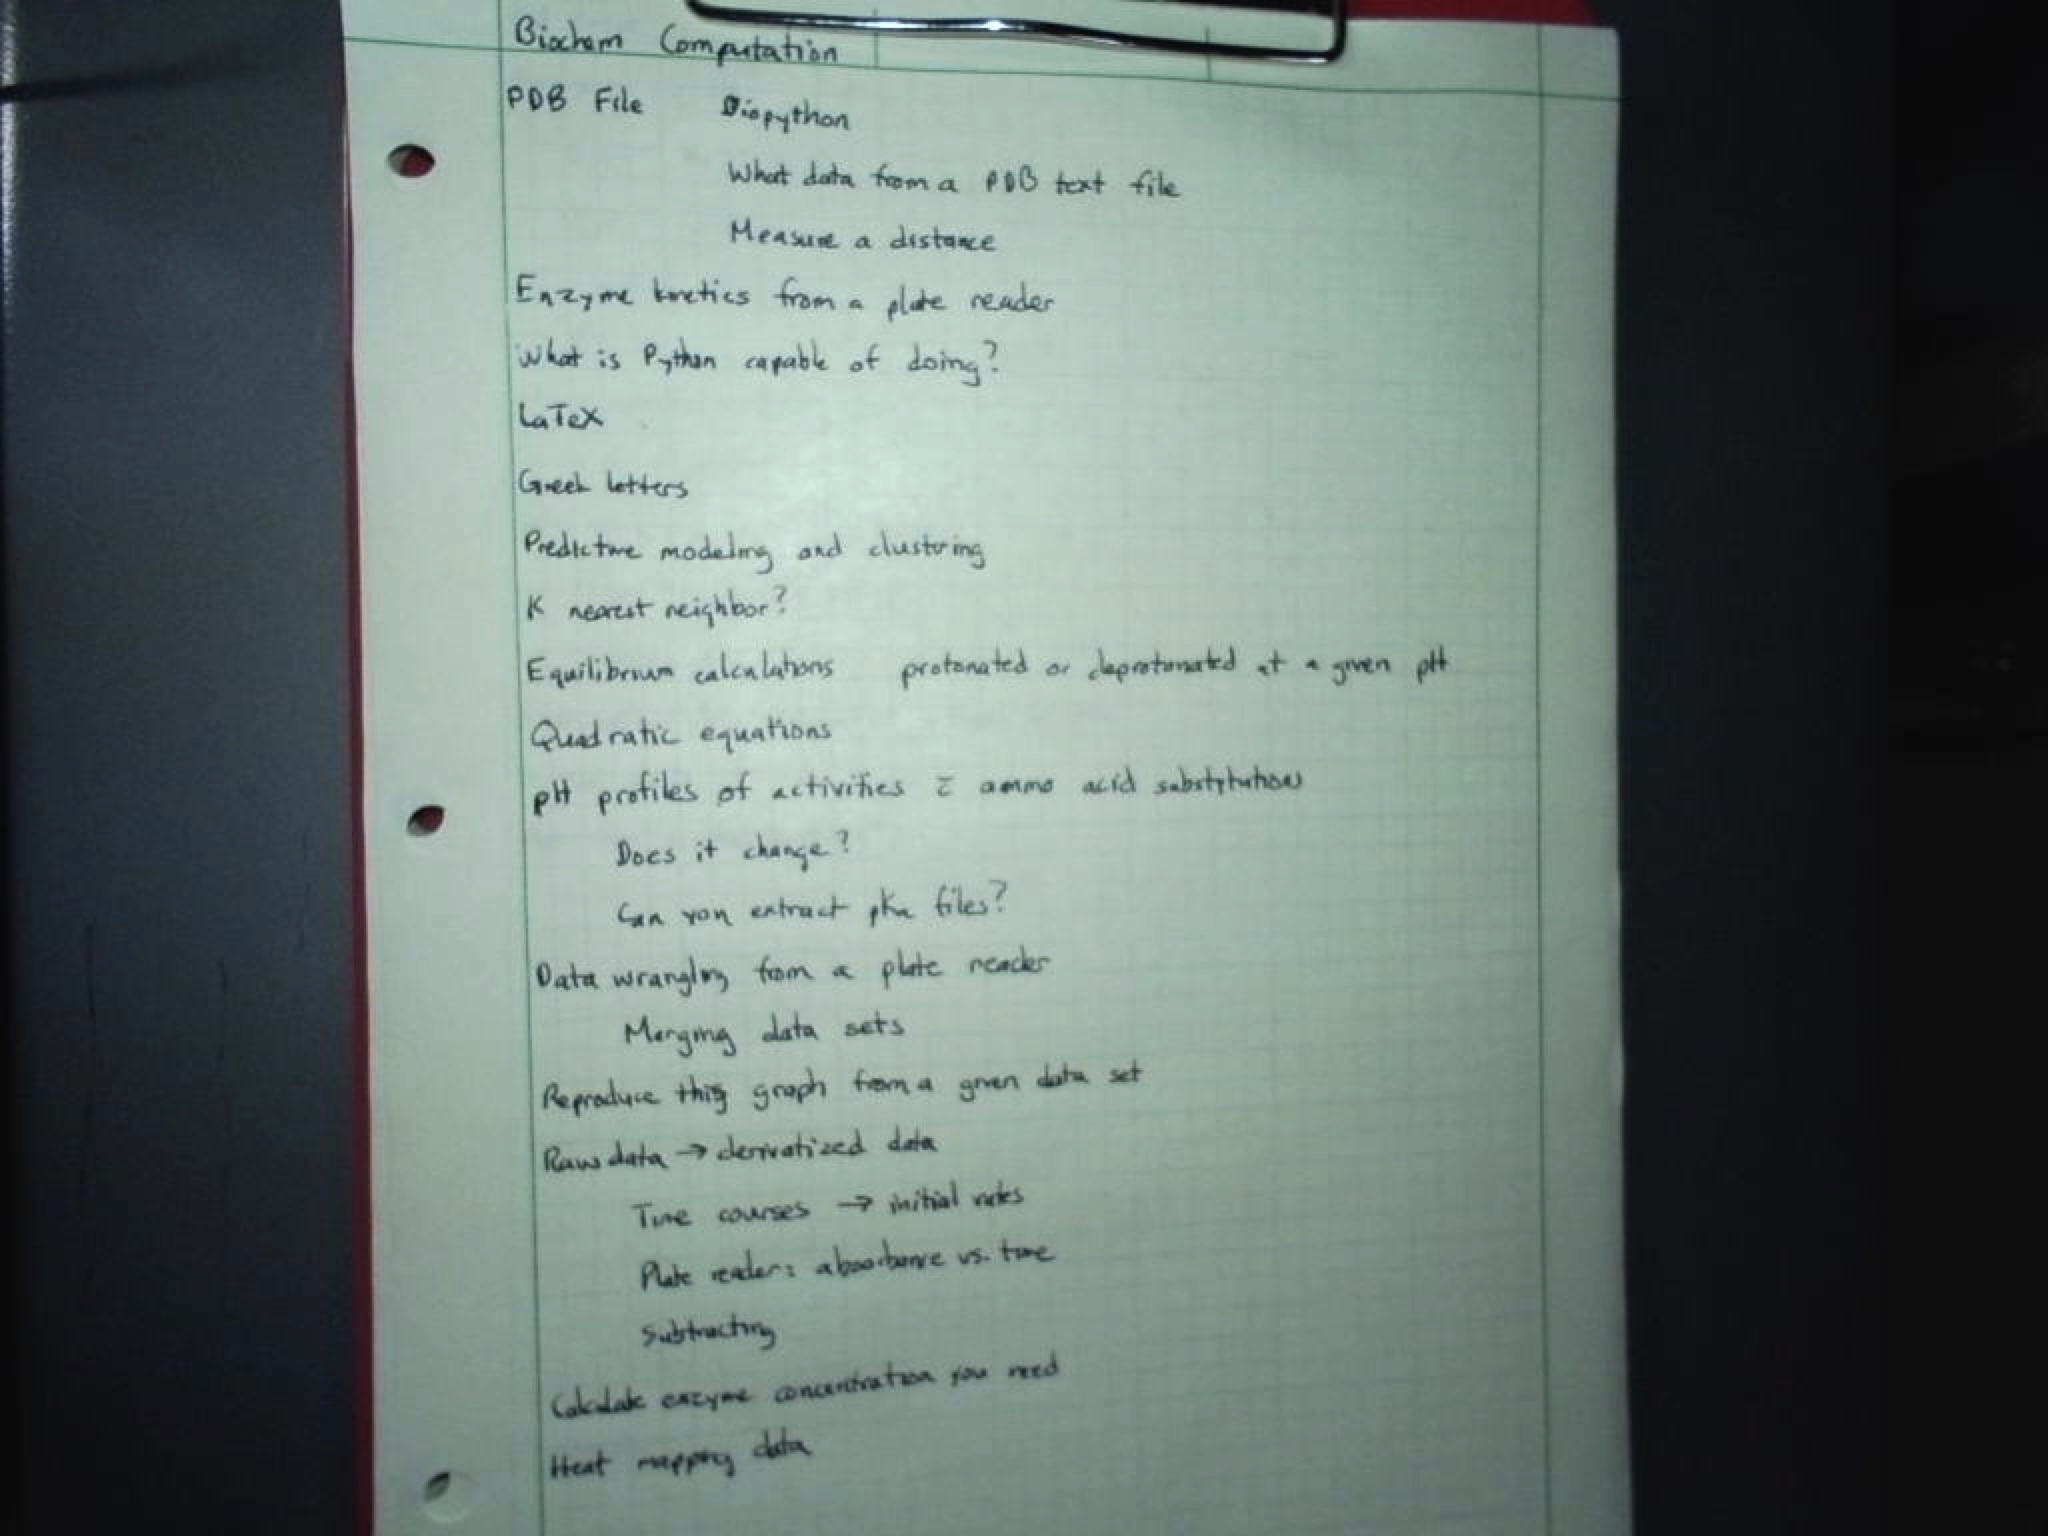 Biochem Computation
PDB File Biopython
What data from a PDB text file
Measure a distance
Enzyme kinetics from a plate reader
What is Python capable of doing?
LaTeX
Greek letters
Predictive modeling and clustering
K nearest neighbor?
Equilibrium calculations protonated or deprotonated at a given pH
Quadratic equations
pH profiles of activities c̄ amino acid substitutions
Does it change?
Can you extract pKa files?
Data wrangling from a plate reader
Merging data sets
Reproduce this graph from a given data set
Raw data → derivatized data
Time courses → initial rates
Plate reader: absorbance vs. time
Subtracting
Calculate enzyme concentration you need
Heat mapping data